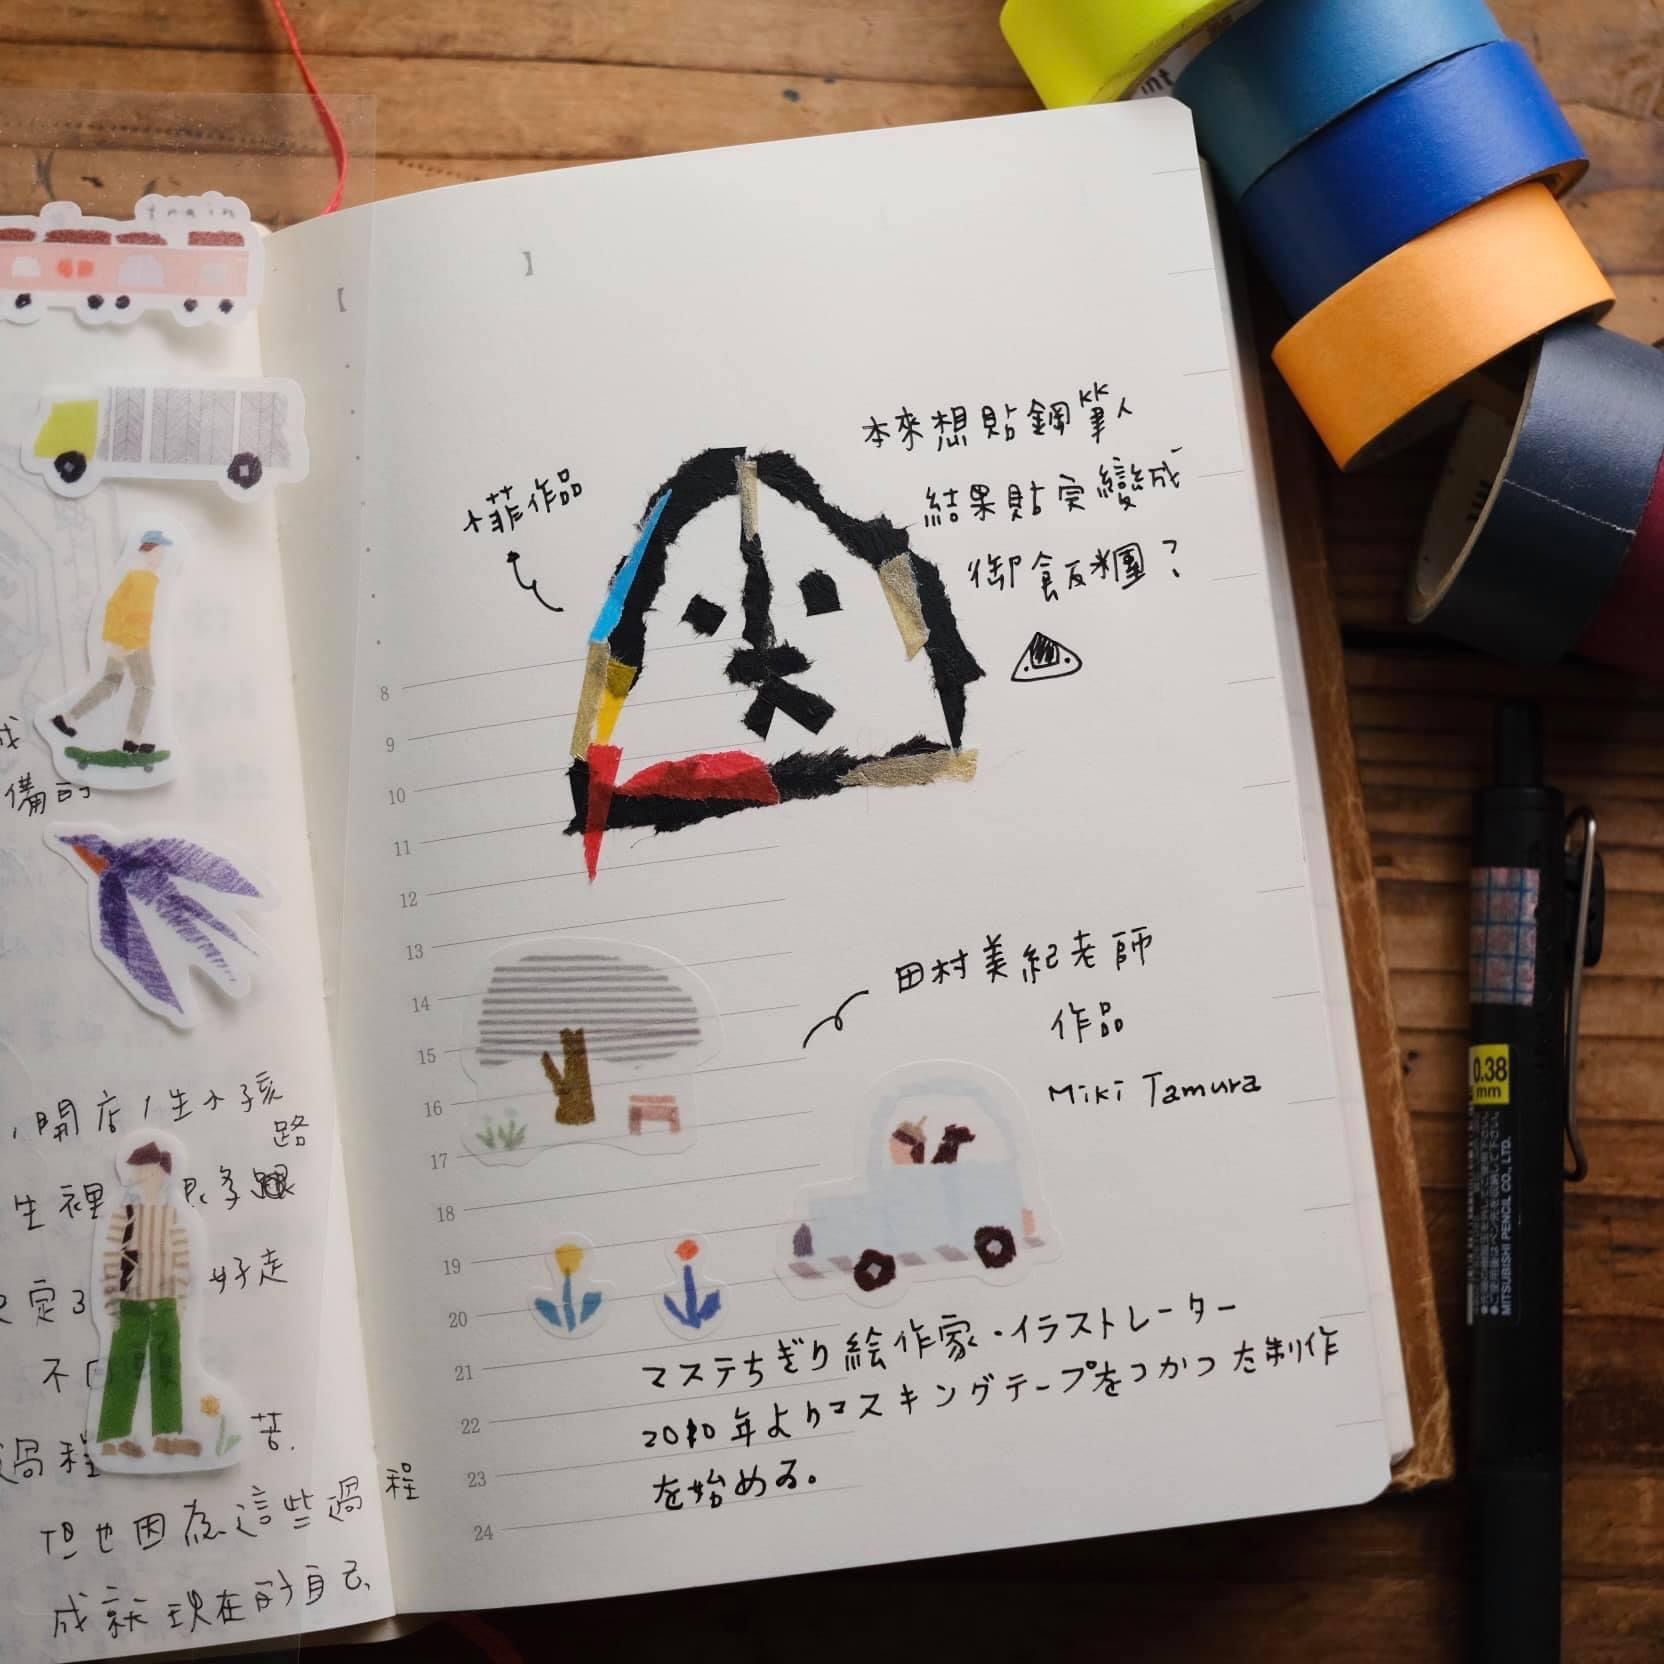 train
成
備的
，開店，生小孩
路
生裡
很多
決定了
好走
不
苦.
過程
但也因為這些過程
成就現在的自己
【 】
小菲作品
本來想貼鋼筆人
結果貼完變成
御飯糰？
8
9
10
11
12
13
14
15
16
17
18
19
20
21
22
23
24
田村美紀老師
作品
Miki Tamura
マステちぎり絵作家・イラストレーター
2010年よりマスキングテープをつかった制作
を始める。
0.38
mm
MITSUBISHI PENCIL CO., LTD.